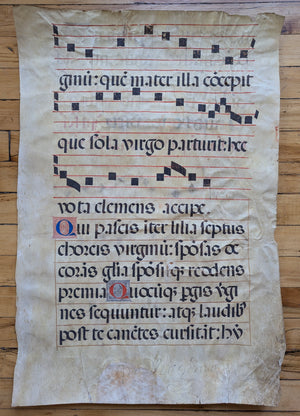 ginū: quē mater illa cōcepit
que sola virgo parturit: hec
vota clemens accipe.
Qui pascis īter lilia septus
choreis virginū: spōsas de
corās glīa spōsisq̄ reddens
premia Quocūq; pgis v̄gi
nes sequuntur: atq; laudib;
post te canētes cursitāt: hy